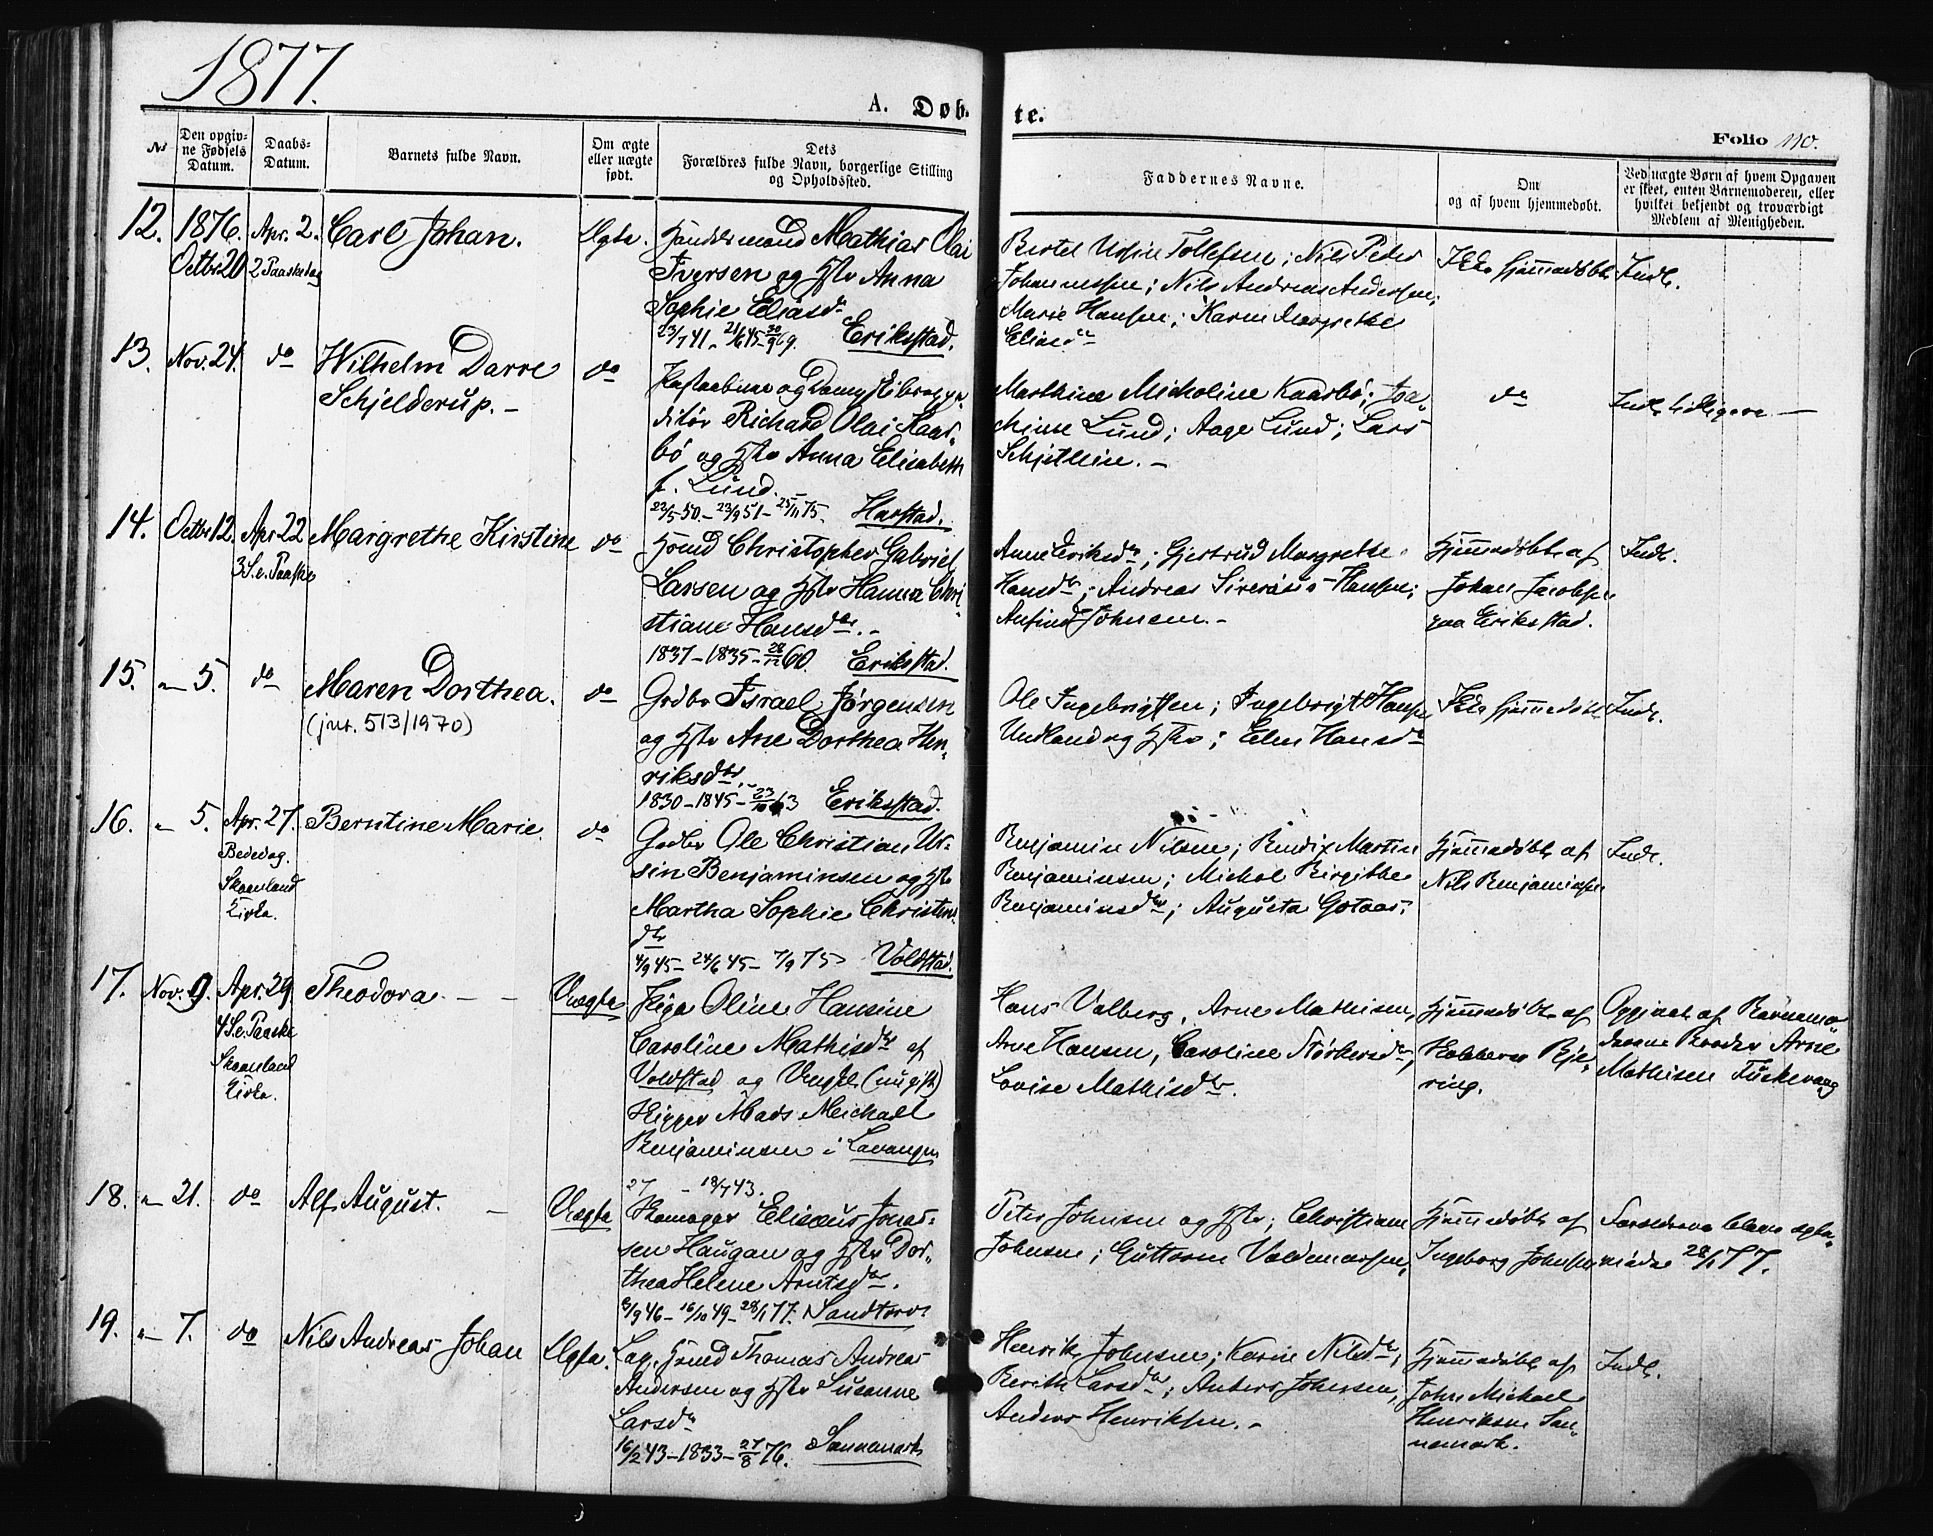 1877.
A. Døb-
te.
Folio 110.
No
Den opgiv-
ne Fødsels
Datum.
Daabs-
Datum.
Barnets fulde Navn.
Om ægte
eller uægte
født.
Dets
Forældres fulde Navn, borgerlige Stilling
og Opholdssted.
Faddernes Navne.
Om
og af hvem hjemmedøbt.
Ved uægte Børn af hvem Opgaven
er skeet, enten Barnemoderen, eller
hvilket bekjendt og troværdigt
Medlem af Menigheden.
12.
1876.
Octbr 20
Apr. 2.
2 Paaskedag
Carl Johan.
Ægte.
Mathias Olai
Iversen og Hstr Anna
Sophie Eliasdr
23/7 41 - 21/6 45 - 30/9 69. Erikstad.
Tollefsen; Nils Peter
Johannessen; Nils Andreas Andersen;
Marie Hansen; Karen Margrethe
Eliasdr
Ikke hjemmedøbt
Indl.
13.
Nov. 24.
do
Wilhelm Darre
Schjelderup. -
do
Richard Olai Kaar-
bø og Hstr Anna Elisabeth
f. Lund.
22/5 50 - 23/9 51 - 25/11 75. Harstad.
Marthine Micholine Kaarbø; Joa-
chime Lund; Aage Lund; Lars
Schjetlein. -
do
Indl. tidligere -
14.
Octbr 12.
Apr 22
3 S. e. Paaske
Margrethe Kirstine
do
Christopher Gabriel
Larsen og Hstr Hanna Chri-
stiane Hansdtr. -
1837 - 1835 - 28/12 60. Erikstad.
Anne Eriksdtr; Gjertrud Margrethe
Hansdtr; Andreas Hansen;
Johnsen -
Hjemmedøbt af
Johan Jacobsen
paa Erikstad.
Indl.
15.
" 5.
do
Maren Dorthea.
(jnr. 513/1970)
do
Gdbr Israel Jørgensen
og Hstr Ane Dorthea Hen-
riksdtr. -
1830 - 1845 - 23/10 63 Erikstad.
Ole Ingebrigtsen; Ingebrigt Hansen
Undland og Hstr; Elen Hansdr
Ikke hjemmedøbt
Indl.
16.
" 5.
Apr. 27.
Bededag.
Skaanland
Kirke.
Berntine Marie.
do
Gdbr Ole Christian Ur-
sin Benjaminsen og Hstr
Martha Sophie Christens-
dtr
4/9 45 - 24/6 45 - 7/9 75 Voldstad.
Benjamin Nilsen; Bendix Martin
Benjaminsen; Michol Birgitte
Benjaminsdtr; Augusta Gotaas.
Hjemmedøbt af
Nils Benjaminsen
Indl.
17.
Nov. 9.
Apr. 29
4 S. e. Paaske
Skaanland
Kirke.
Theodora. - -
Uægte
Pige Oline Hansine
Caroline Mathisdtr af
Voldstad og Ungkl (nu gift)
Mads Meichael
Benjaminsen i Lavangen
27 - 18/7 43.
Hans Valberg, Arne Mathisen,
Arne Hansen, Caroline Størkersdtr,
Lovise Mathisdtr.
Hjemmedøbt af
Bje-
ring.
Opgivet af Barnemo-
derens Broder Arne
Mathisen
18.
" 21.
do
Alf August. -
Uægte
Skomager Elisæus Jonas-
sen Haugan og Hstr Dor-
thea Helene Arntsdtr.
8/9 46 - 16/10 49 - 28/1 77. Sandtorv.
Peter Johnsen og Hstr; Christiane
Johnsen; Guttorm Valdemarsen,
Hjemmedøbt af
Ingeborg Johnsen
Forældrene bleve ægte-
viede 28/1 77.
19.
" 7.
do
Nils Andreas Johan
Ægte.
Thomas Andreas
Andersen og Hstr Susanne
Larsdr
16/2 43 - 1833 - 27/8 76. Sannamark
Henrik Johnsen; Karine Nilsdtr;
Berith Larsdtr; Anders Johnsen,
Anders Henriksen. -
Hjemmedøbt af
John Mickael
Henriksen San-
namark.
Indl.